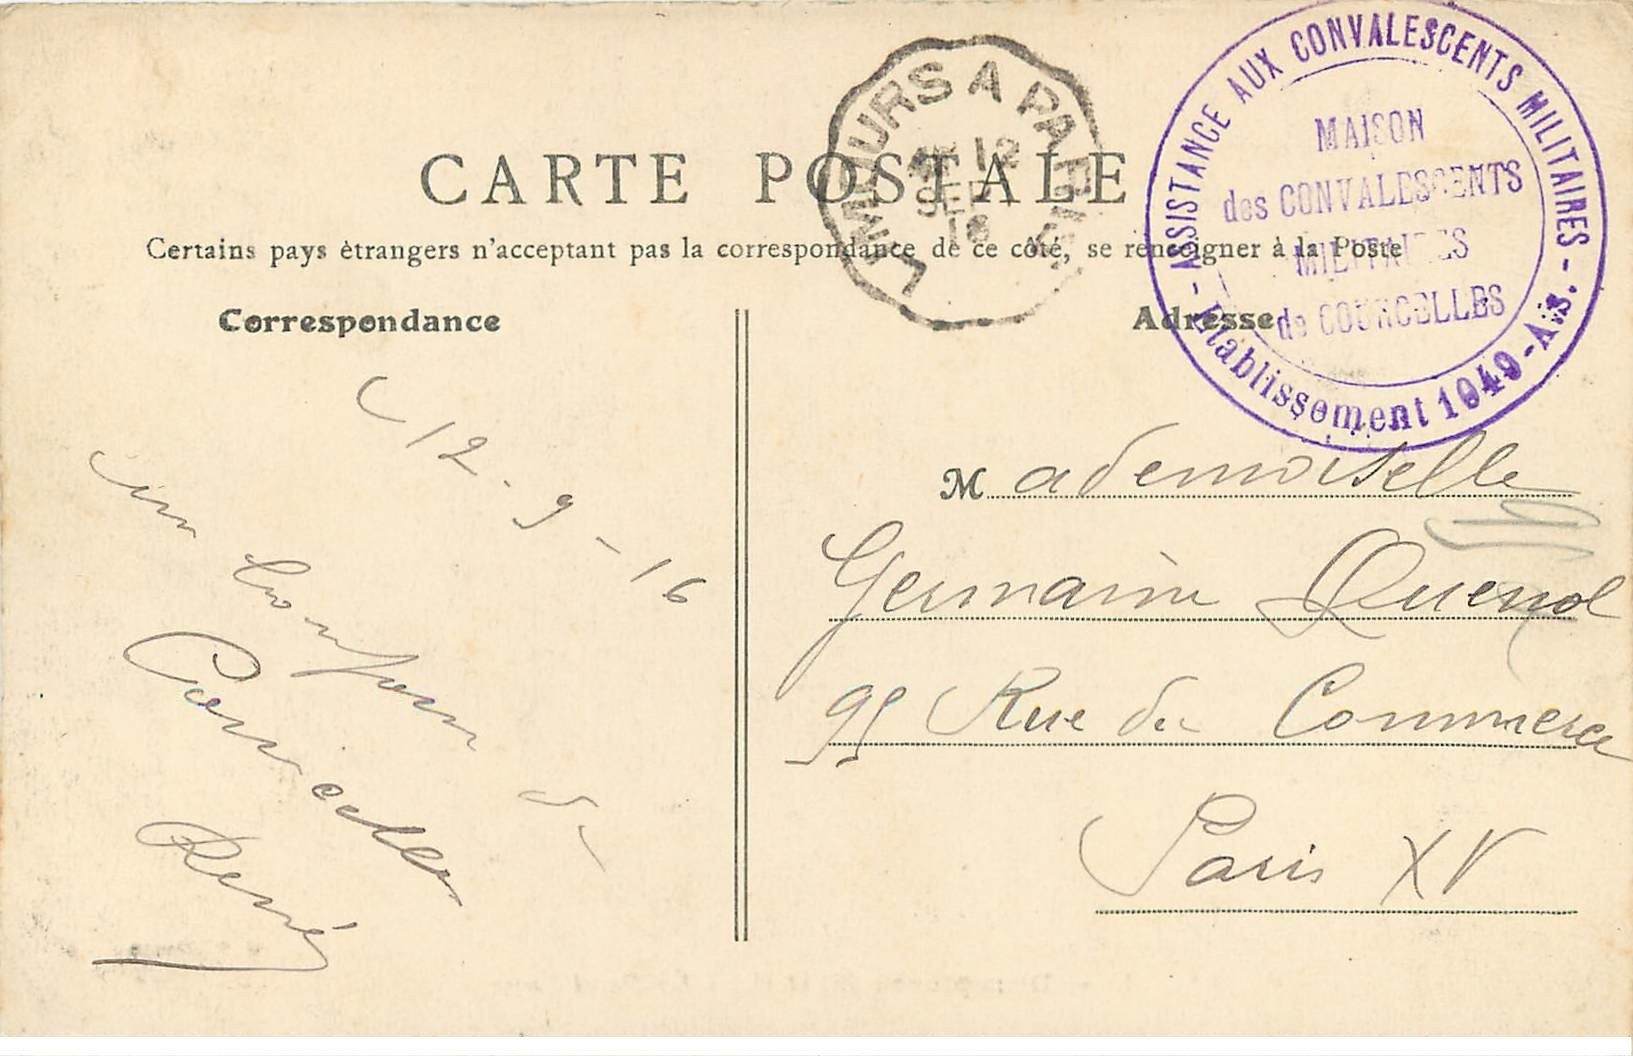 CARTE POSTALE
Certains pays étrangers n'acceptent pas la correspondance de ce côté, se renseigner à la Poste
Correspondance
Adresse
LIMOURS A PARIS
12
SEP
16
ASSISTANCE AUX CONVALESCENTS MILITAIRES
MAISON
des CONVALESCENTS
MILITAIRES
de COURCELLES
- Etablissement 1949-A.s. -
12-9-16
un bonjour de
Courcelles
René
Mademoiselle
Germaine Quenol
95 Rue du Commerce
Paris XV